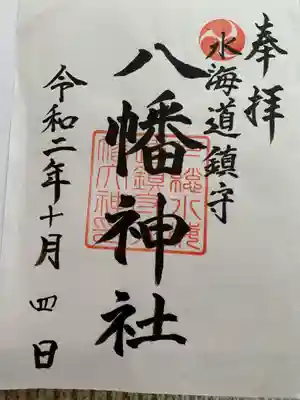 奉拝
水海道鎮守
八幡神社
令和二年十月四日